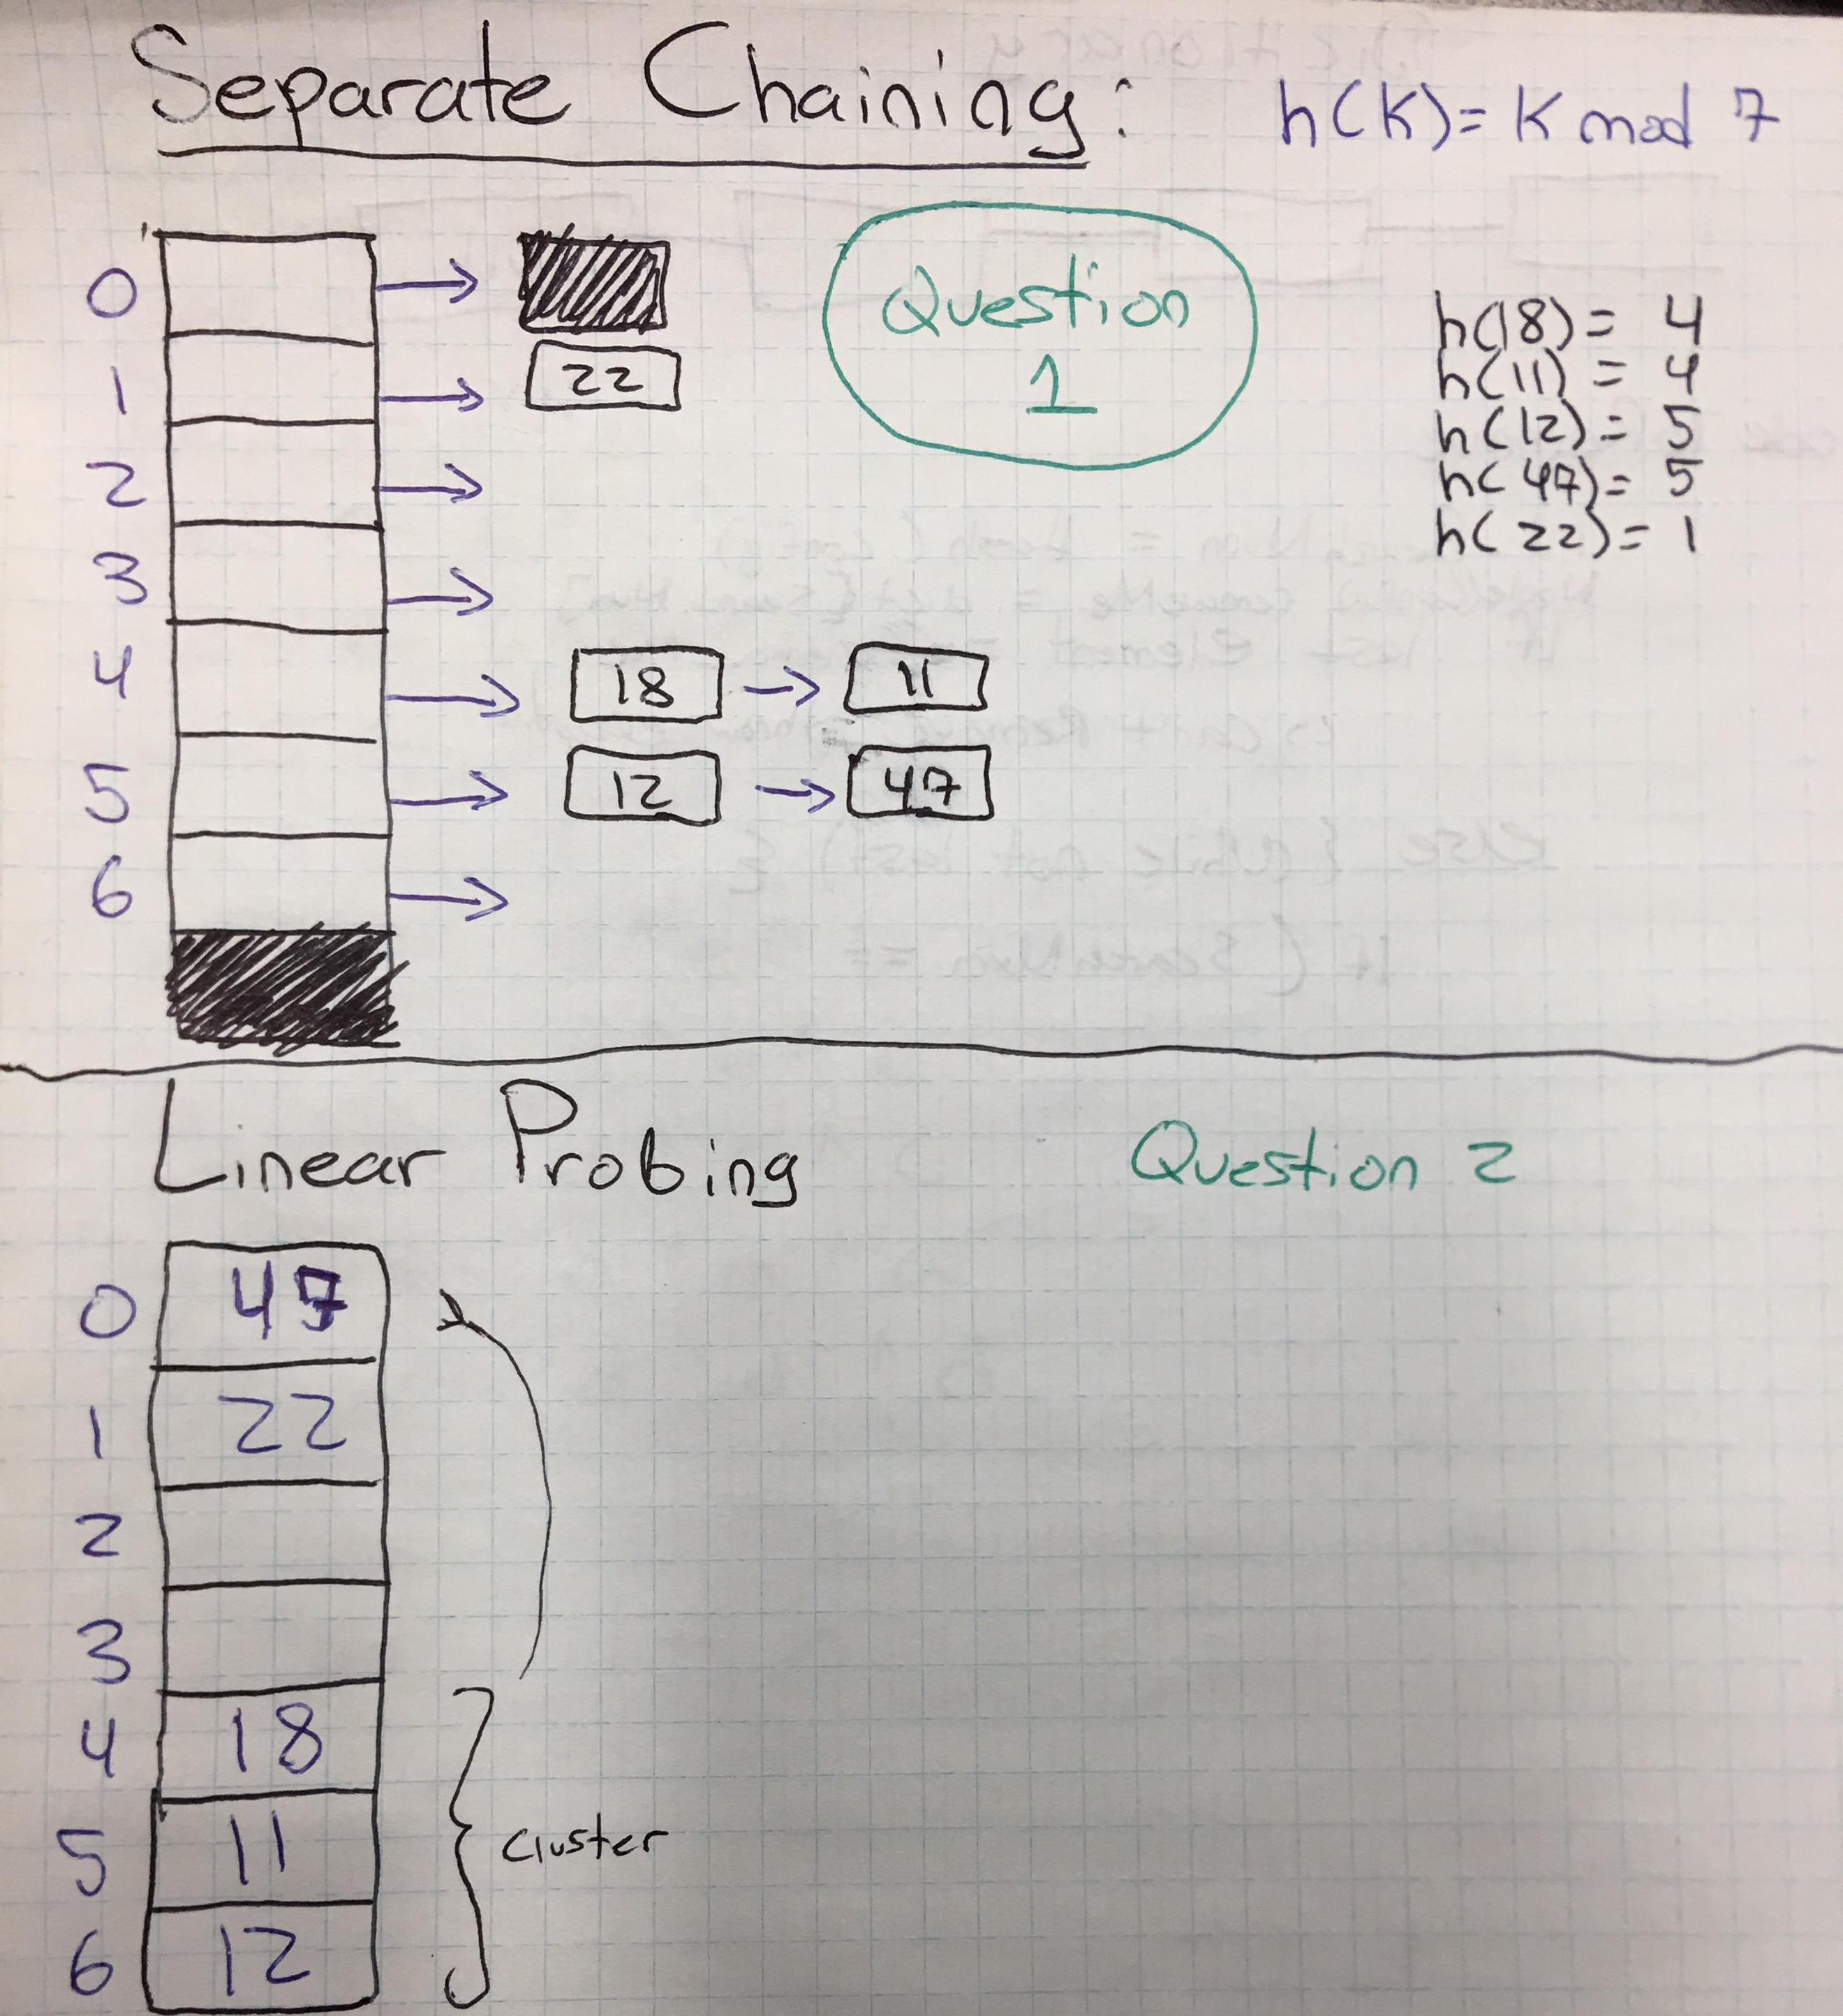 Separate Chaining:
h(K)= K mod 7
Question
1
h(18)= 4
h(11) = 4
h(12)= 5
h(47)= 5
h(22)= 1
0
1 22
2
3
4 18 11
5 12 47
6
Linear Probing
Question 2
0 47
1 22
2
3
4 18
5 11
Cluster
6 12